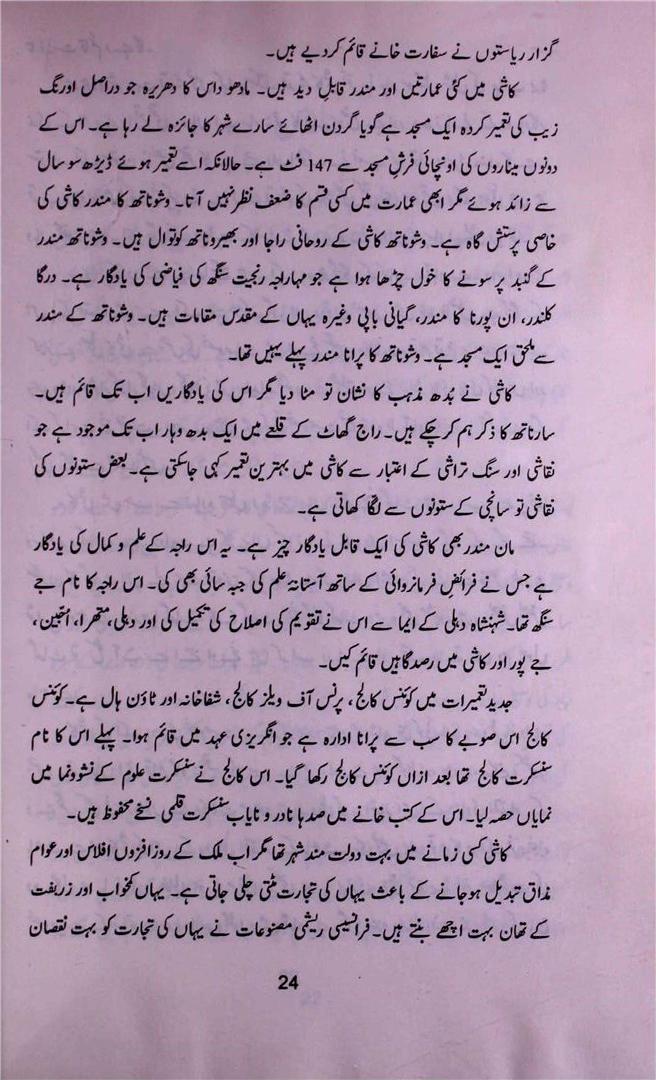 گزار ریاستوں نے سفارت خانے قائم کردیے ہیں۔
کاشی میں کئی عمارتیں اور مندر قابلِ دید ہیں۔ مادھو داس کا دھریرہ جو دراصل اورنگ
زیب کی تعمیر کردہ ایک مسجد ہے گویا گردن اٹھائے سارے شہر کا جائزہ لے رہا ہے۔ اس کے
دونوں میناروں کی اونچائی فرشِ مسجد سے 147 فٹ ہے۔ حالانکہ اسے تعمیر ہوئے ڈیڑھ سو سال
سے زائد ہوئے مگر ابھی عمارت میں کسی قسم کا ضعف نظر نہیں آتا۔ وشوناتھ کا مندر کاشی کی
خاصی پرستش گاہ ہے۔ وشوناتھ کاشی کے روحانی راجا اور بھیروناتھ کوتوال ہیں۔ وشوناتھ مندر
کے گنبد پر سونے کا خول چڑھا ہوا ہے جو مہاراجہ رنجیت سنگھ کی فیاضی کی یادگار ہے۔ درگا
کلندر، ان پورنا کا مندر، گیانی باپی وغیرہ یہاں کے مقدس مقامات ہیں۔ وشوناتھ کے مندر
سے ملحق ایک مسجد ہے۔ وشوناتھ کا پرانا مندر پہلے یہیں تھا۔
کاشی نے بُدھ مذہب کا نشان تو مٹا دیا مگر اس کی یادگاریں اب تک قائم ہیں۔
سارناتھ کا ذکر ہم کرچکے ہیں۔ راج گھاٹ کے قلعے میں ایک بدھ وہار اب تک موجود ہے جو
نقاشی اور سنگ تراشی کے اعتبار سے کاشی میں بہترین تعمیر کہی جاسکتی ہے۔ بعض ستونوں کی
نقاشی تو سانچی کے ستونوں سے لگا کھاتی ہے۔
مان مندر بھی کاشی کی ایک قابل یادگار چیز ہے۔ یہ اس راجہ کے علم و کمال کی یادگار
ہے جس نے فرائضِ فرمانروائی کے ساتھ آستانۂ علم کی جبہ سائی بھی کی۔ اس راجہ کا نام جے
سنگھ تھا۔ شہنشاہ دہلی کے ایما سے اس نے تقویم کی اصلاح کی تکمیل کی اور دہلی، متھرا، اُجین،
جے پور اور کاشی میں رصدگاہیں قائم کیں۔
جدید تعمیرات میں کوئنس کالج، پرنس آف ویلز کالج، شفاخانہ اور ٹاؤن ہال ہے۔ کوئنس
کالج اس صوبے کا سب سے پرانا ادارہ ہے جو انگریزی عہد میں قائم ہوا۔ پہلے اس کا نام
سنسکرت کالج تھا بعد ازاں کوئنس کالج رکھا گیا۔ اس کالج نے سنسکرت علوم کے نشوونما میں
نمایاں حصہ لیا۔ اس کے کتب خانے میں صدہا نادر و نایاب سنسکرت قلمی نسخے محفوظ ہیں۔
کاشی کسی زمانے میں بہت دولت مند شہر تھا مگر اب ملک کے روز افزوں افلاس اور عوام
مذاق تبدیل ہوجانے کے باعث یہاں کی تجارت مٹتی چلی جاتی ہے۔ یہاں کمخواب اور زربفت
کے تھان بہت اچھے بنتے ہیں۔ فرانسیسی ریشمی مصنوعات نے یہاں کی تجارت کو بہت نقصان
24